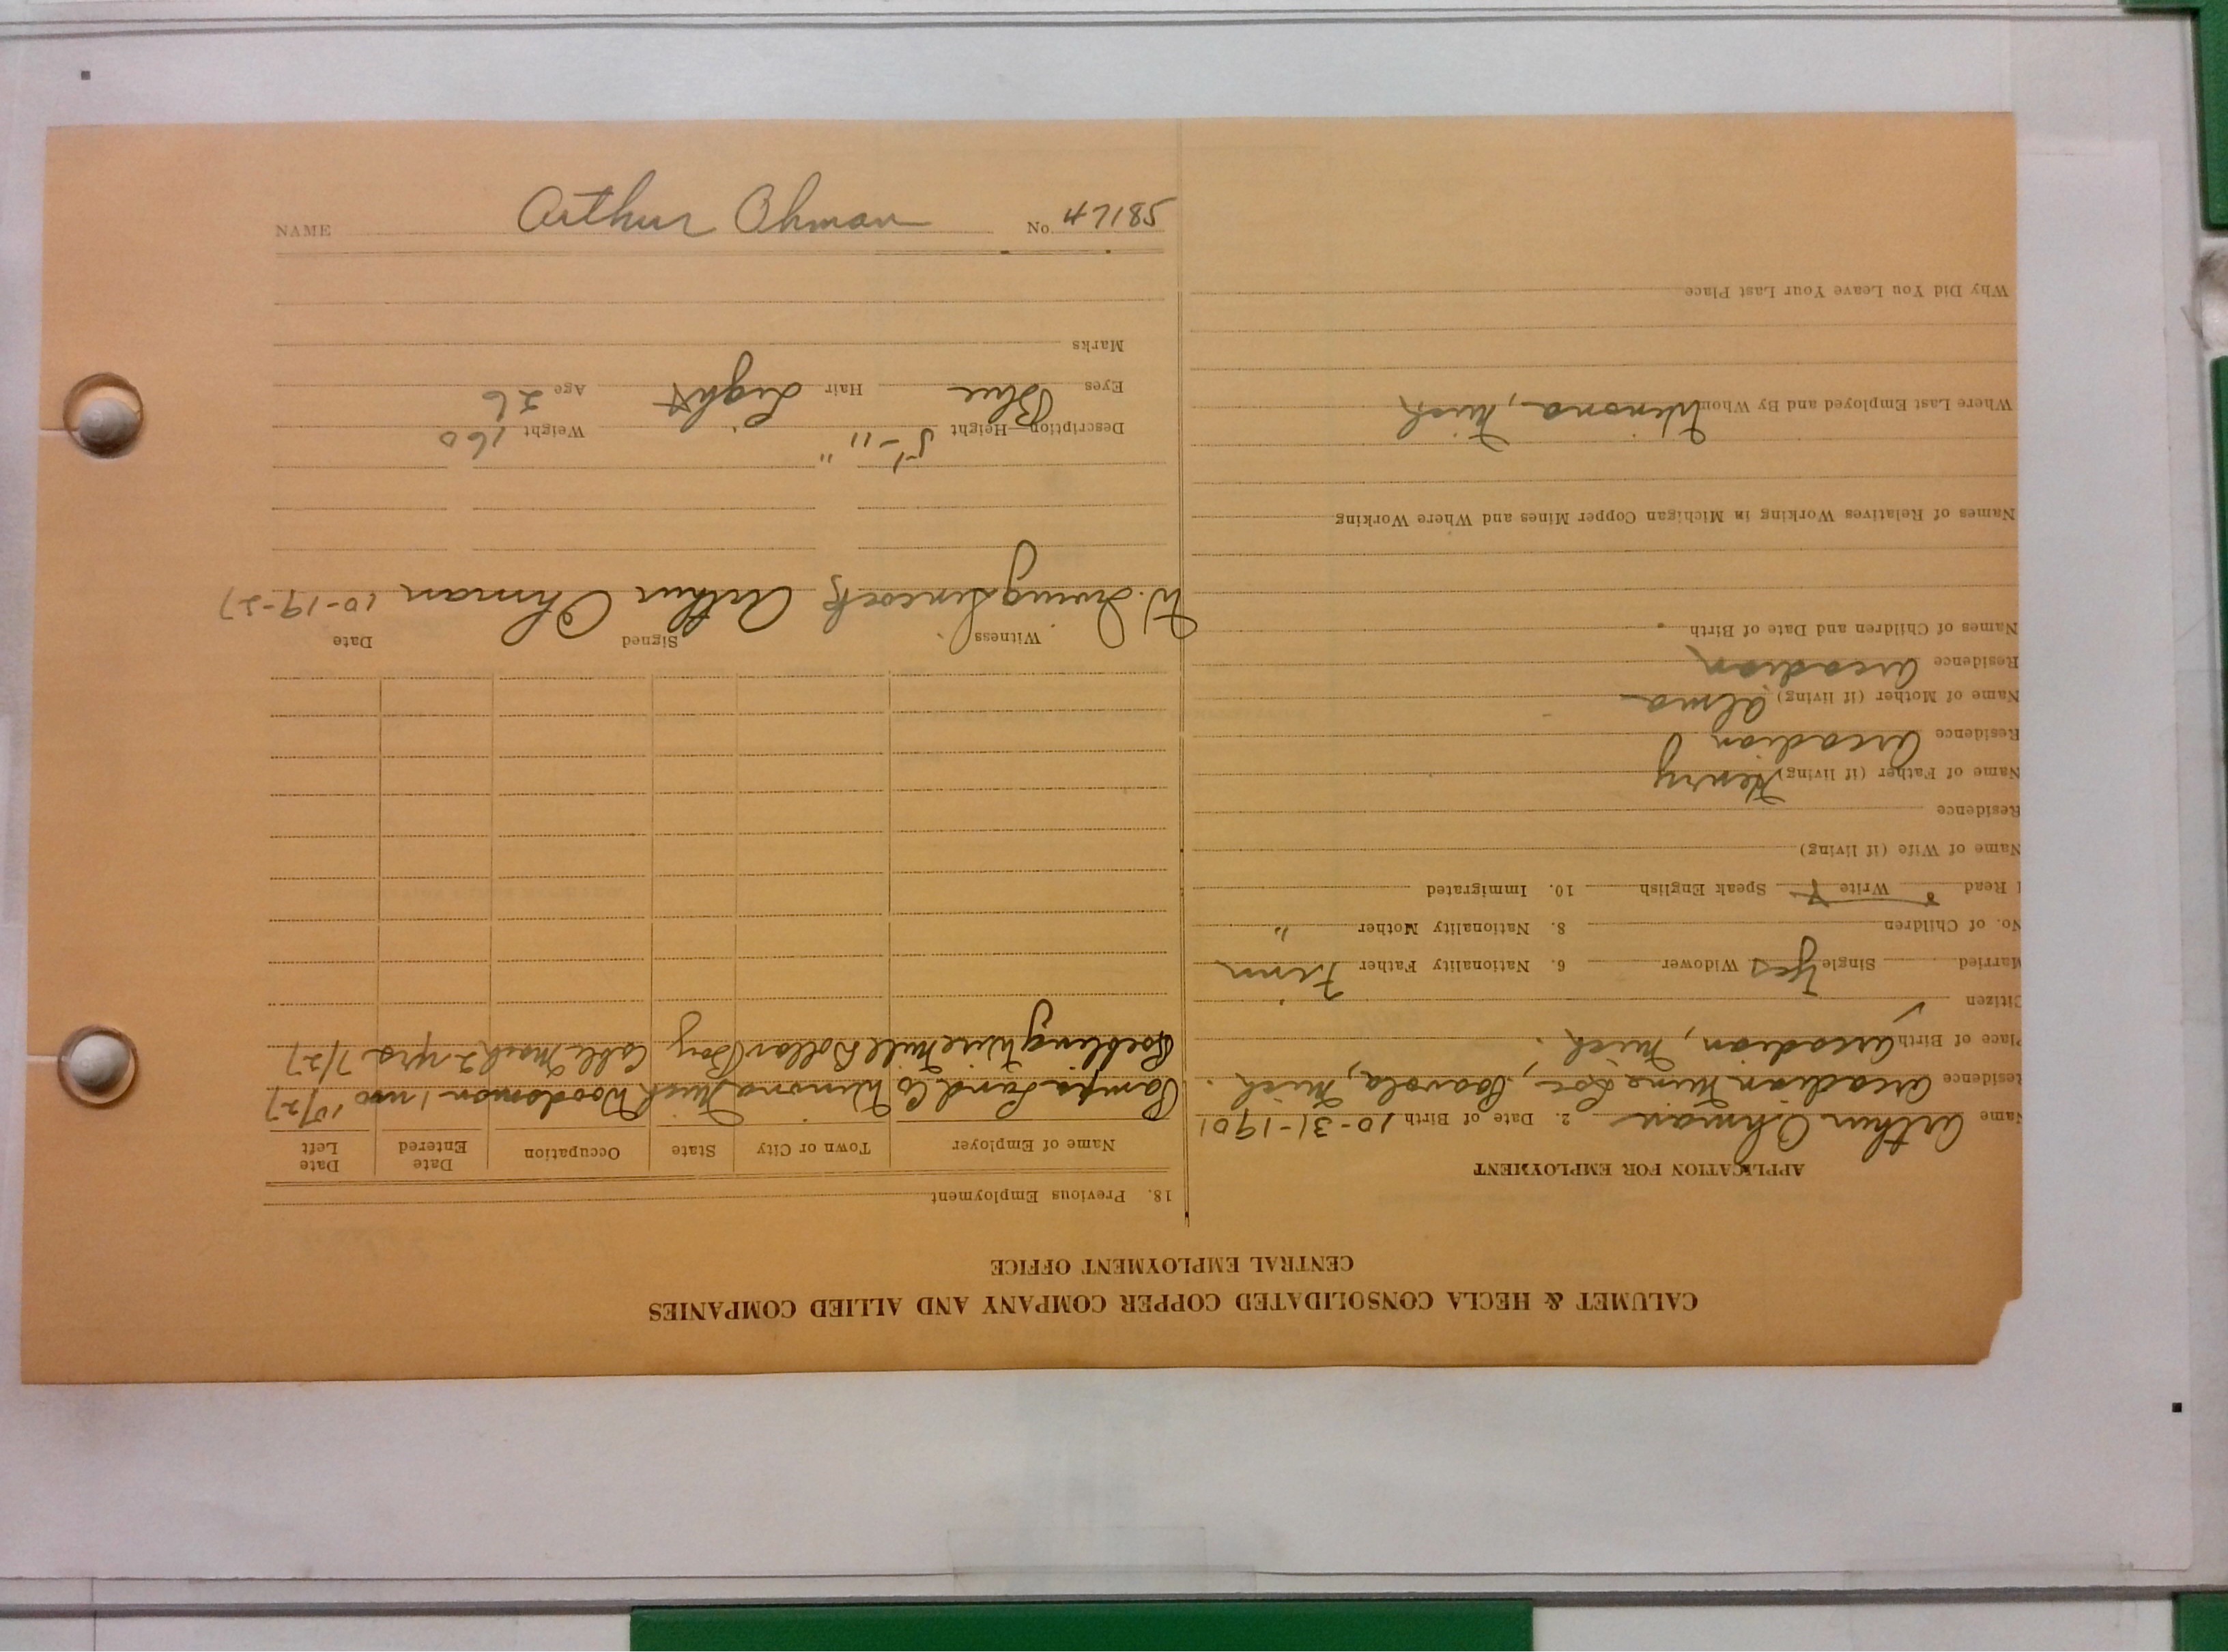 NAME Arthur Ohman No. 47185
CALUMET & HECLA CONSOLIDATED COPPER COMPANY AND ALLIED COMPANIES
CENTRAL EMPLOYMENT OFFICE
APPLICATION FOR EMPLOYMENT
Name Arthur Ohman 2. Date of Birth 10-31-1901
Residence Arcadian Mine Loc., Boavola, Mich.
Place of Birth Arcadian, Mich.
Citizen ✓
Married Single Yes Widower 6. Nationality Father Finn
No. of Children 8. Nationality Mother "
Read Write Speak English 10. Immigrated
Name of Wife (if living)
Residence
Name of Father (if living) Henry
Residence Arcadian
Name of Mother (if living) Alma
Residence Arcadian
Names of Children and Date of Birth
Names of Relatives Working in Michigan Copper Mines and Where Working
Where Last Employed and By Whom Winona, Mich
Why Did You Leave Your Last Place
18. Previous Employment
Name of Employer Town or City State Occupation Date Entered Date Left
Land Co Winona Mich Woodsman 1 mo 10/27
Roebling Wire Mill Dollar Bay Mach 2 yrs 7/27
Witness Signed Date
W. Irving Arthur Ohman 10-19-27
Description—Height 5'-11" Weight 160
Eyes Blue Hair Light Age 26
Marks